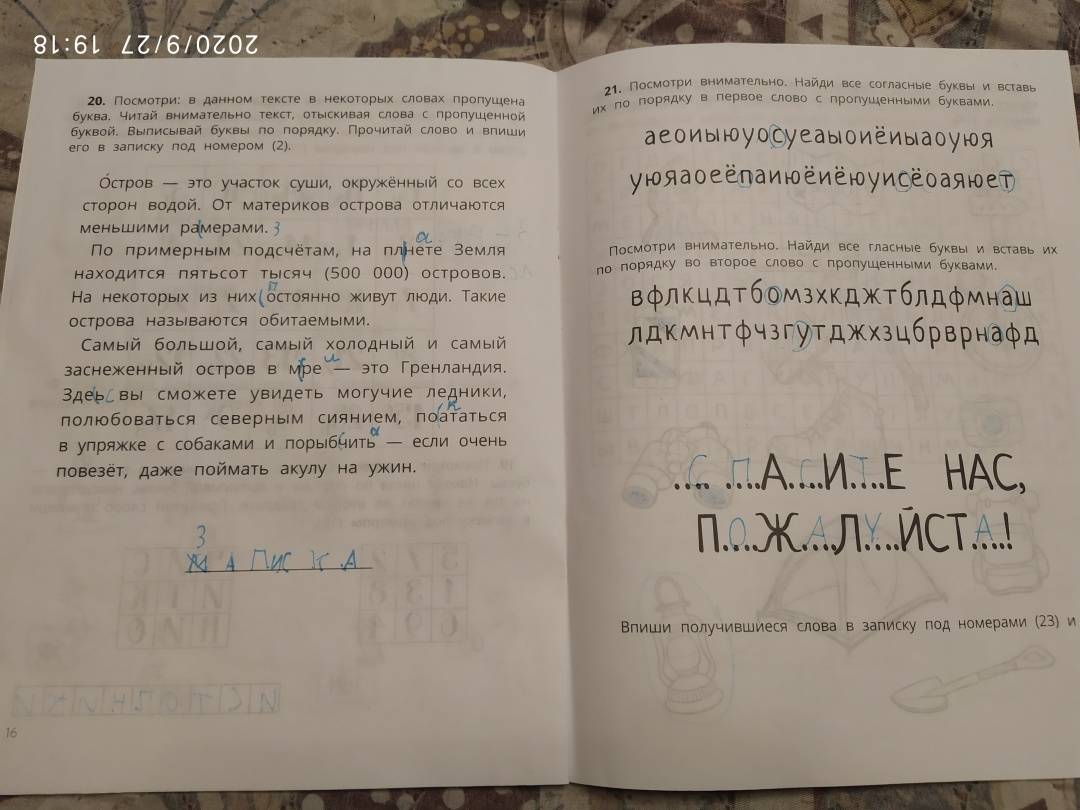 2020/9/27 19:18
20. Посмотри: в данном тексте в некоторых словах пропущена
буква. Читай внимательно текст, отыскивая слова с пропущенной
буквой. Выписывай буквы по порядку. Прочитай слово и впиши
его в записку под номером (2).
О́стров — это участок суши, окружённый со всех
сторон водой. От материков острова отличаются
меньшими рамерами. З
а
По примерным подсчётам, на плнете Земля
находится пятьсот тысяч (500 000) островов.
п
На некоторых из них остоянно живут люди. Такие
острова называются обитаемыми.
Самый большой, самый холодный и самый
и
заснеженный остров в мре — это Гренландия.
Здеь с вы сможете увидеть могучие ледники,
к
полюбоваться северным сиянием, поататься
а
в упряжке с собаками и порыбчить — если очень
повезёт, даже поймать акулу на ужин.
З
АПИСКА
ИСТОЧНИКИ
16
21. Посмотри внимательно. Найди все согласные буквы и вставь
их по порядку в первое слово с пропущенными буквами.
аеоиыюуосуеаыоиёиыаоуюя
уюяаоеёпаиюёиёюуисёоаяюет
Посмотри внимательно. Найди все гласные буквы и вставь их
по порядку во второе слово с пропущенными буквами.
вфлкцдтбомзхкджтблдфмнаш
лдкмнтфчзгутджхзцбрврнафд
СПАСИТЕ НАС,
ПОЖАЛУЙСТА!
Впиши получившиеся слова в записку под номерами (23) и